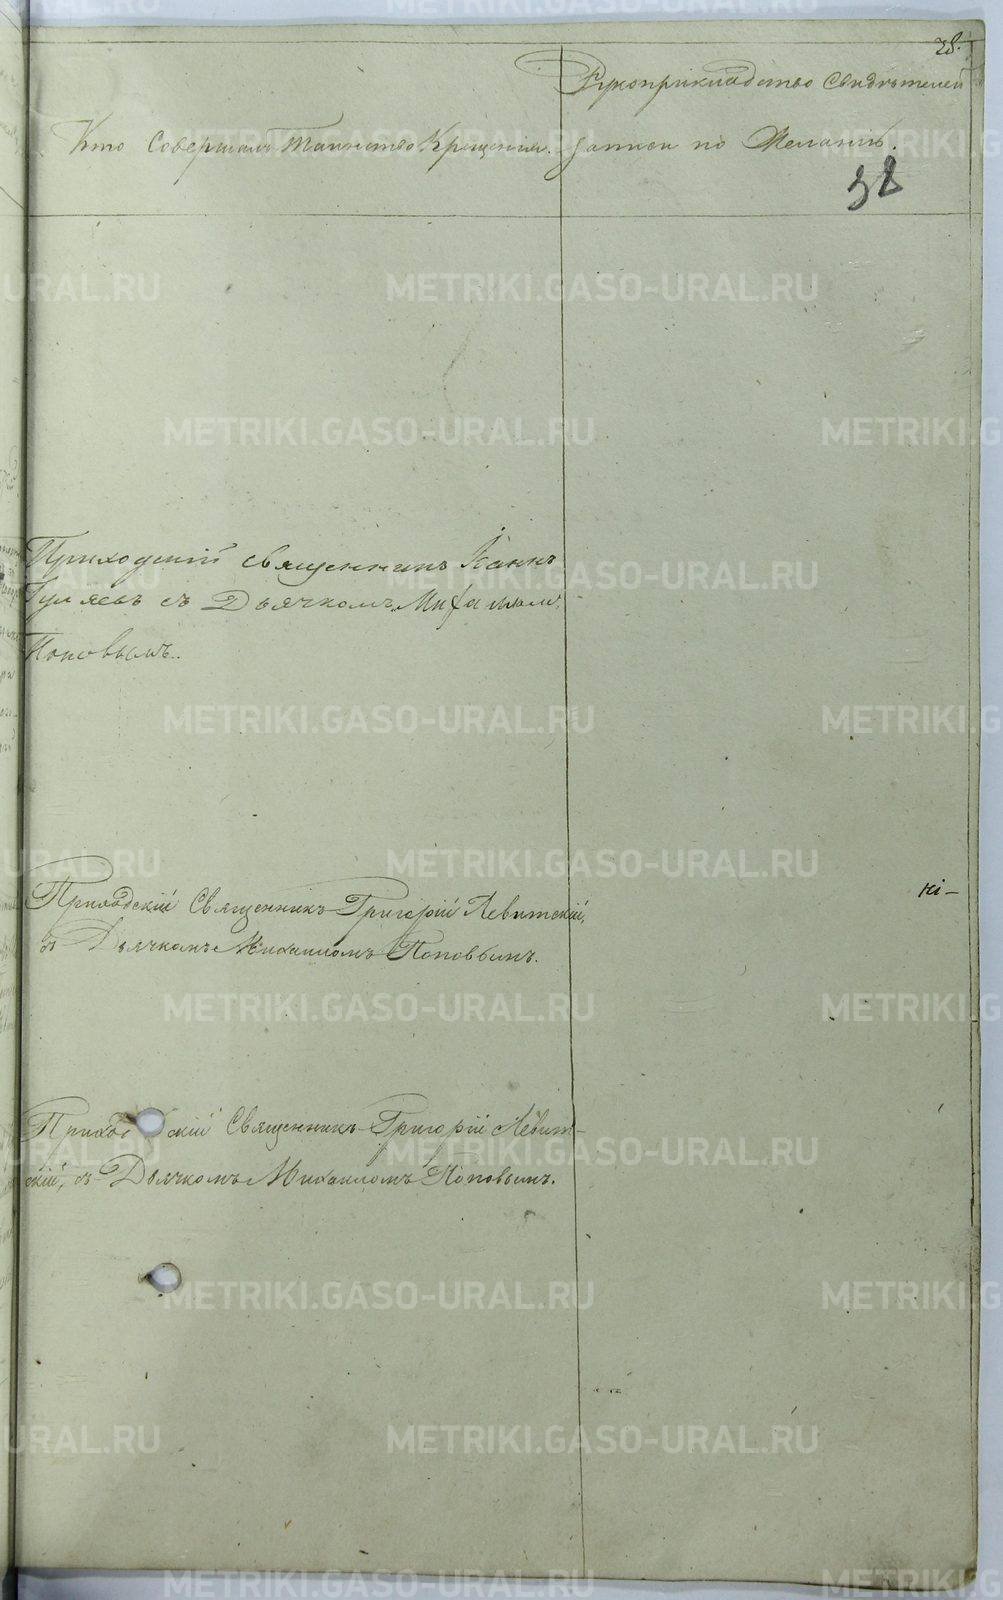 28.
Рукоприкладство Свидѣтелей
Кто Совершалъ Таинство Крещенія. записи по Желанію.
38
Приходскій священникъ Іоаннъ
Гуляевъ съ Дьячкомъ Михаиломъ
Поповымъ.
Приходскій Священникъ Григорій Левитскій,
съ Дьячкомъ Михаиломъ Поповымъ.
кі-
Приходскій Священникъ Григорій Левит-
скій, съ Дьячкомъ Михаиломъ Поповымъ.
METRIKI.GASO-URAL.RU